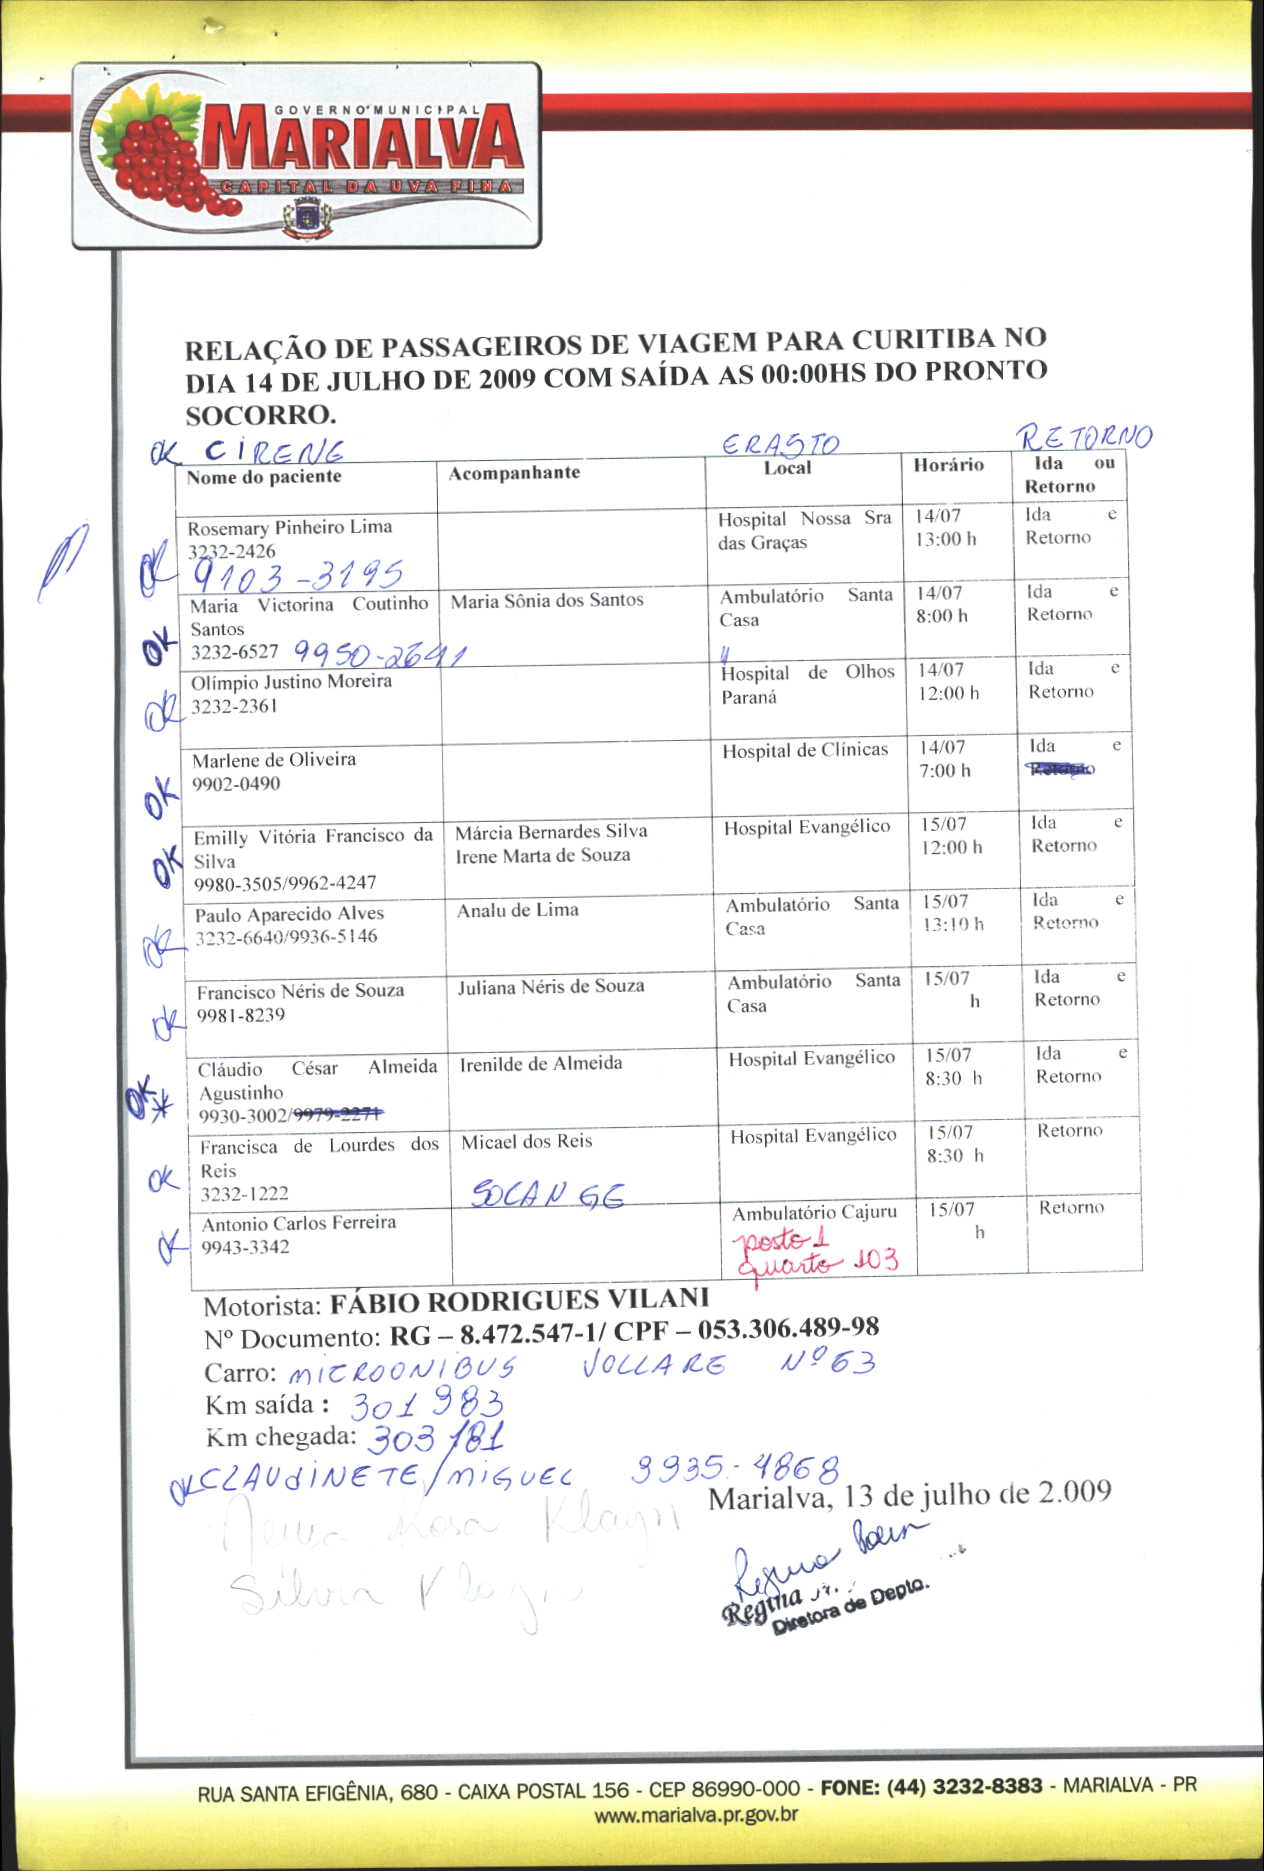 GOVERNO MUNICIPAL
MARIALVA
CAPITAL DA UVA FINA
RELAÇÃO DE PASSAGEIROS DE VIAGEM PARA CURITIBA NO
DIA 14 DE JULHO DE 2009 COM SAÍDA AS 00:00HS DO PRONTO
SOCORRO.
OK CIRENE ERASTO RETORNO
Nome do paciente Acompanhante Local Horário Ida ou
Retorno
Rosemary Pinheiro Lima Hospital Nossa Sra 14/07 Ida e
3232-2426 das Graças 13:00 h Retorno
OK 9103-3195
Maria Victorina Coutinho Maria Sônia dos Santos Ambulatório Santa 14/07 Ida e
Santos Casa 8:00 h Retorno
OK 3232-6527 9950-2641
Olímpio Justino Moreira Hospital de Olhos 14/07 Ida e
OK 3232-2361 Paraná 12:00 h Retorno
Marlene de Oliveira Hospital de Clínicas 14/07 Ida e
OK 9902-0490 7:00 h Retorno
Emilly Vitória Francisco da Márcia Bernardes Silva Hospital Evangélico 15/07 Ida e
OK Silva Irene Marta de Souza 12:00 h Retorno
9980-3505/9962-4247
Paulo Aparecido Alves Analu de Lima Ambulatório Santa 15/07 Ida e
OK 3232-6640/9936-5146 Casa 13:10 h Retorno
Francisco Néris de Souza Juliana Néris de Souza Ambulatório Santa 15/07 Ida e
OK 9981-8239 Casa h Retorno
Cláudio César Almeida Irenilde de Almeida Hospital Evangélico 15/07 Ida e
OK* Agustinho 8:30 h Retorno
9930-3002/9979-2271
Francisca de Lourdes dos Micael dos Reis Hospital Evangélico 15/07 Retorno
OK Reis 8:30 h
3232-1222 SOLANGE
Antonio Carlos Ferreira Ambulatório Cajuru 15/07 Retorno
OK 9943-3342 posto 1 h
quarto 103
Motorista: FÁBIO RODRIGUES VILANI
Nº Documento: RG – 8.472.547-1/ CPF – 053.306.489-98
Carro: MICROONIBUS VOLLARE Nº 63
Km saída : 301 983
Km chegada: 303 181
OK CLAUDINETE/MIGUEL 9935-4868
Marialva, 13 de julho de 2.009
Rosa
Silvia
Regina
Regina
Diretora de Depto.
RUA SANTA EFIGÊNIA, 680 - CAIXA POSTAL 156 - CEP 86990-000 - FONE: (44) 3232-8383 - MARIALVA - PR
www.marialva.pr.gov.br